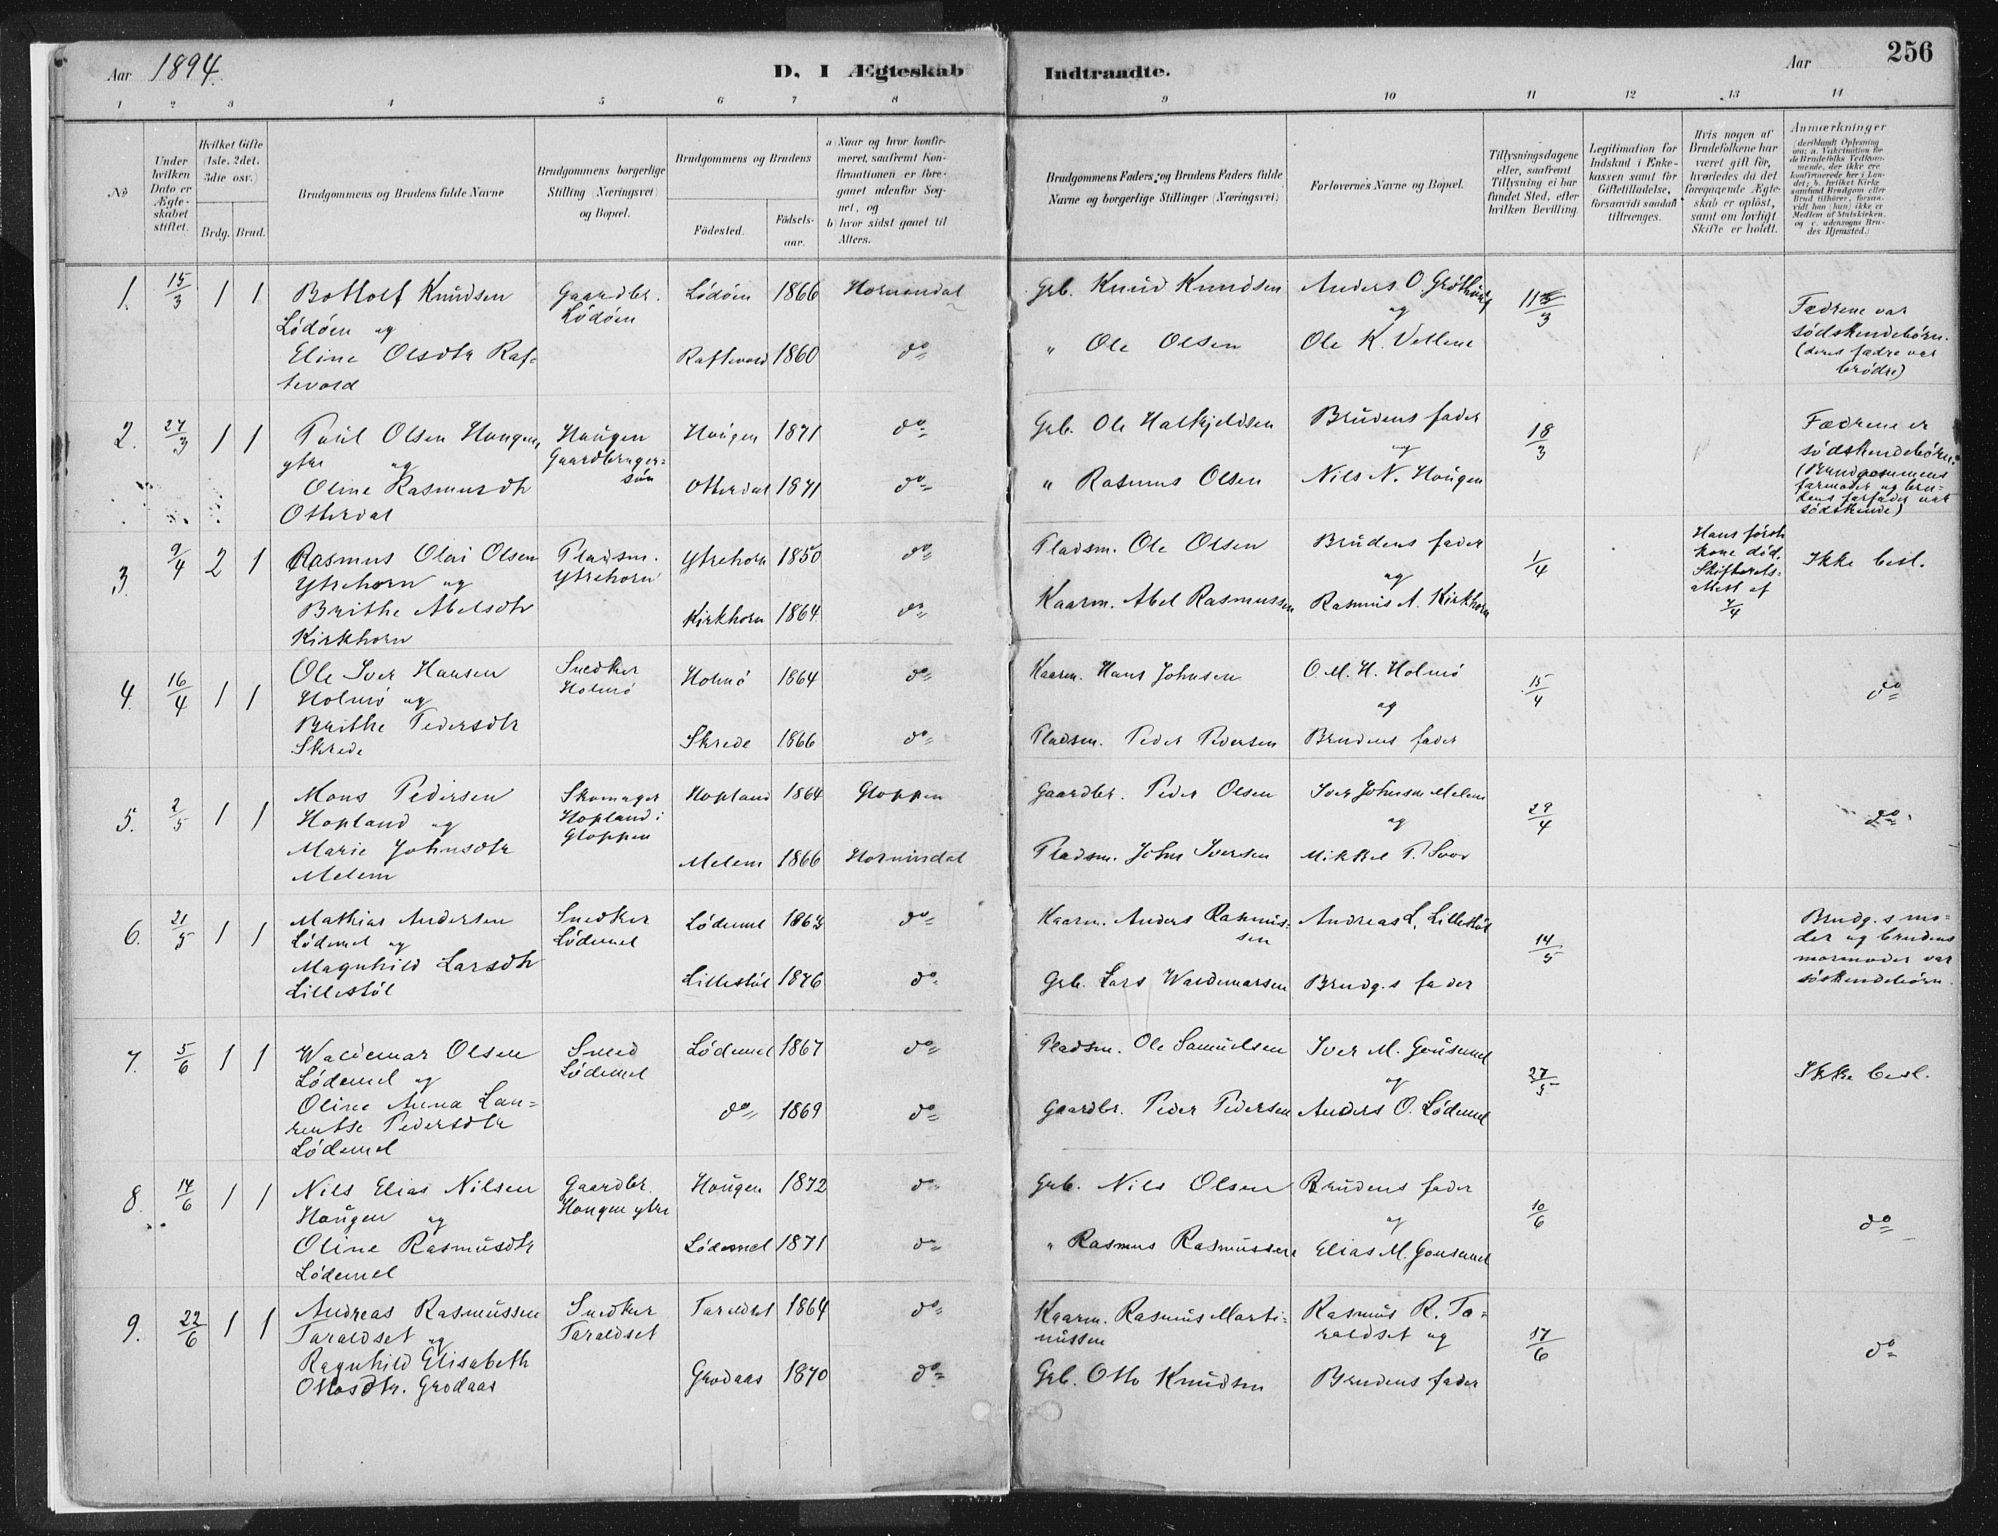 Aar 1894.
D. I Ægteskab Indtraadte.
Aar 256
1 2 3 4 5 6 7 8 9 10 11 12 13 14
No
Under hvilken Dato er Ægteskabet stiftet.
Hvilket Gifte (1ste, 2det, 3die osv.)
Brdg. Brud.
Brudgommens og Brudens fulde Navne
Brudgommens borgerlige Stilling (Næringsvei) og Bopæl.
Brudgommens og Brudens
Fødested. Fødsels-aar.
a) Naar og hvor konfirmeret, saafremt Konfirmationen er foregaaet udenfor Sognet, og
b) hvor sidst gaaet til Alters.
Brudgommens Faders og Brudens Faders fulde Navne og borgerlige Stillinger (Næringsvei)
Forlovernes Navne og Bopæl.
Tillysningsdagene eller, saafremt Tillysning ei har fundet Sted, efter hvilken Bevilling.
Legitimation for Indskud i Enkekassen samt for Giftetilladelse, forsaavidt saadan tiltrænges.
Hvis nogen af Brudefolkene har været gift før, hvorledes da det foregaaende Ægteskab er opløst, samt om lovligt Skifte er holdt.
Anmærkninger (deriblandt Oplysning om: a. Vakcination for de Brudefolks Vedkommende, der ikke ere konfirmerede her i Landet; b. hvilket Kirkesamfund Brudgom eller Brud tilhører, forsaavidt han (hun) ikke er Medlem af Statskirken, og c. udensogns Brudes Hjemsted.)
1. 15/3 1 1 Bottolf Knudsen Gaardbr. Lödöen 1866 Hornindal Grb. Knud Knudsen Anders O. 11/3 Fædrene var
Lödöen og Lödöen og södskendebörn.
Eline Olsdtr Raf- Raftevold 1860 do " Ole Olsen Ole K. Vetlene (deres fædre var
tevold brödre)
2. 27/3 1 1 Paul Olsen Hougen Hougen Hougen 1871 do Grb. Ole Halkjeldsen Brudens fader 18/3 Fædrene er
ytre og Gaardbruger- og södskendebörn.
Oline Rasmusdtr sön Otterdal 1871 do " Rasmus Olsen Nils N. Hougen (Brudgommens
Otterdal farmoder og bru-
dens farfader var
södskende)
3. 9/4 2 1 Rasmus Olai Olsen Pladsm. Ytrehorn 1850 do Pladsm. Ole Olsen Brudens fader 1/4 Hans förste Ikke besl.
Ytrehorn og Ytrehorn og kone död.
Brithe Abelsdtr Kirkhorn 1864 do Kaarm. Abel Rasmussen Rasmus A. Kirkhorn Skifterets-
Kirkhorn attest af 7/4
4. 16/4 1 1 Ole Iver Hansen Snedker Holmö 1864 do Kaarm. Hans Johnsen O. M. H. Holmö 15/4 do
Holmö og Holmö og
Brithe Pedersdtr Skrede 1866 do Pladsm. Peder Pedersen Brudens fader
Skrede
5. 2/5 1 1 Mons Pedersen Skomager Hopland 1864 Gloppen Gaardbr. Peder Olsen Iver Johnsen Melem 29/4 do
Hopland og Hopland i og
Marie Johnsdtr Gloppen Melem 1866 Hornindal Pladsm. John Iversen Mikkel P. Svor
Melem
6. 21/5 1 1 Mathias Andersen Snedker Lödemel 1863 do Kaarm. Anders Rasmus- Andreas L. Lillestöl 14/5 Brudg.s mo-
Lödemel og Lödemel sen der og brudens
Magnhild Larsdtr Lillestöl 1876 do Grb. Lars Waldemarsen Brudg.s fader mormoder var
Lillestöl söskendebörn.
7. 5/6 1 1 Waldemar Olsen Smed Lödemel 1867 do Pladsm. Ole Samuelsen Iver M. Gousemel 27/5 Ikke besl.
Lödemel og Lödemel og
Oline Anna Lau- do 1869 do Gaardbr. Peder Pedersen Anders O. Lödemel
rentse Pedersdtr
Lödemel
8. 14/6 1 1 Nils Elias Nilsen Gaardbr Hougen 1872 do Grb. Nils Olsen Brudens fader 10/6 do
Hougen og Hougen ytre og
Oline Rasmusdtr Lödemel 1871 do " Rasmus Rasmussen Elias M. Gousemel
Lödemel
9. 22/6 1 1 Andreas Rasmussen Snedker Taraldset 1864 do Kaarm. Rasmus Marti- Rasmus R. Ta- 17/6 do
Taraldset og Taraldset nussen raldset og
Ragnhild Elisabeth Grodaas 1870 do Grb. Otto Knudsen Brudens fader
Ottosdtr. Grodaas